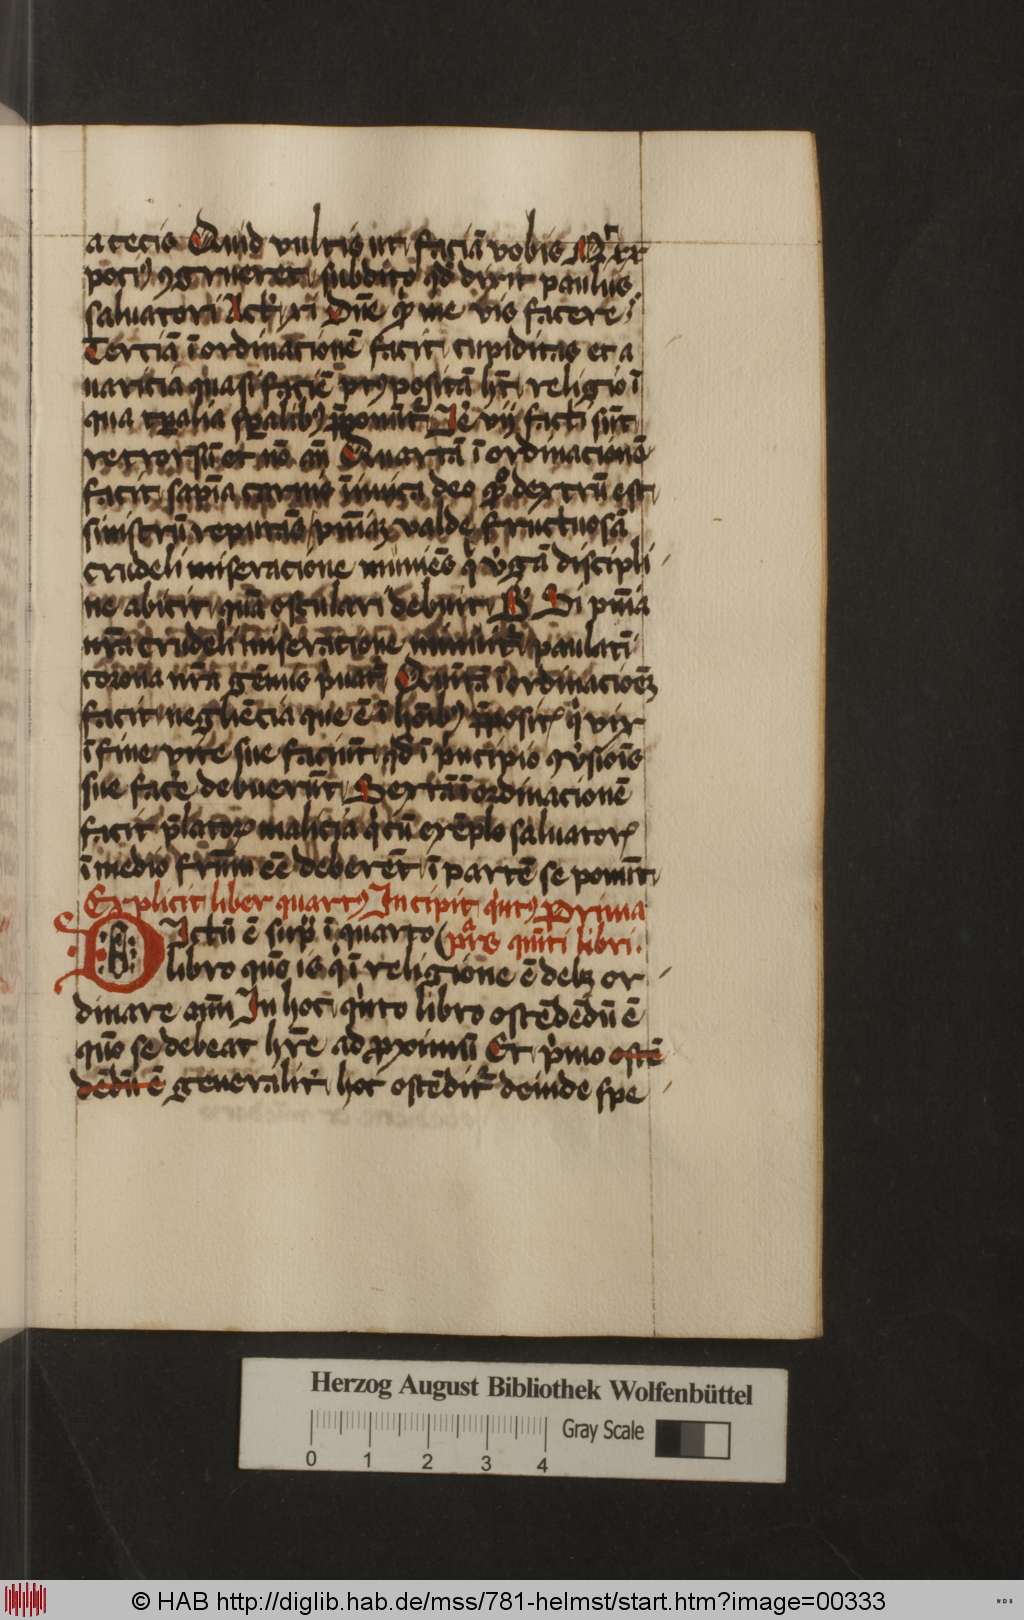 a cecis Quid vultis ut faciā vobis Mr̄ xx
poti9 ꝯgrueret subdito qd dixit paulus
salvatori Act. xi Dn̄e qͥ me vis facere
Terciā īordinacionē facit cupiditas et a
varicia quasi faciē p9positā hꝫ religio ī
qua tꝑalia sp̄alib9 p̄ponūt Je vij facti sūt
retrorsū et nō an̄ Quartā īordinacionē
facit sapīa carnis īimica deo qͥ dextrū est
sinistrū reputās pn̄iaꝫ valde fructuosā
crudeli miseracione minuēs qͥ v̓gā discipli
ne abicit quā osculari debuit B̓ Si pn̄ia
nr̄a crudeli miseracione minuit paulatī
corona nr̄a gēmis pͥvat Quītā īordinacioēꝫ
facit negligēcia que ē ī hoīb9 p̄posit qͥ vix
ī fine vite sue faciūt qd ī pͥncipio ꝯv̓siōis
sue facͤe debuerūt Sextā īordinacionē
facit p̄latoꝝ malicia qͥ cū exēplo salvator
ī medio fr̄um eē deberēt ī partē se ponūt
Explicit liber quart9 Incipit qͥnt9 Prima
DIctū ē supͣ ī quarto (pͣrs quīti libri.
libro quō is qͥ ī religione ē debꝫ or
dinare aīm In hoc qͥnto libro ostēdēdū ē
quō se debeat hr̄e ad ꝓximū Et pͥmo ostē
dēdū ē generalit hoc ostēdit deinde spe
Herzog August Bibliothek Wolfenbüttel
0 1 2 3 4 Gray Scale
© HAB http://diglib.hab.de/mss/781-helmst/start.htm?image=00333